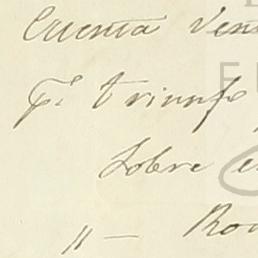 Cuenta Ven
pª. triunfo
Sobre e
" — Ro